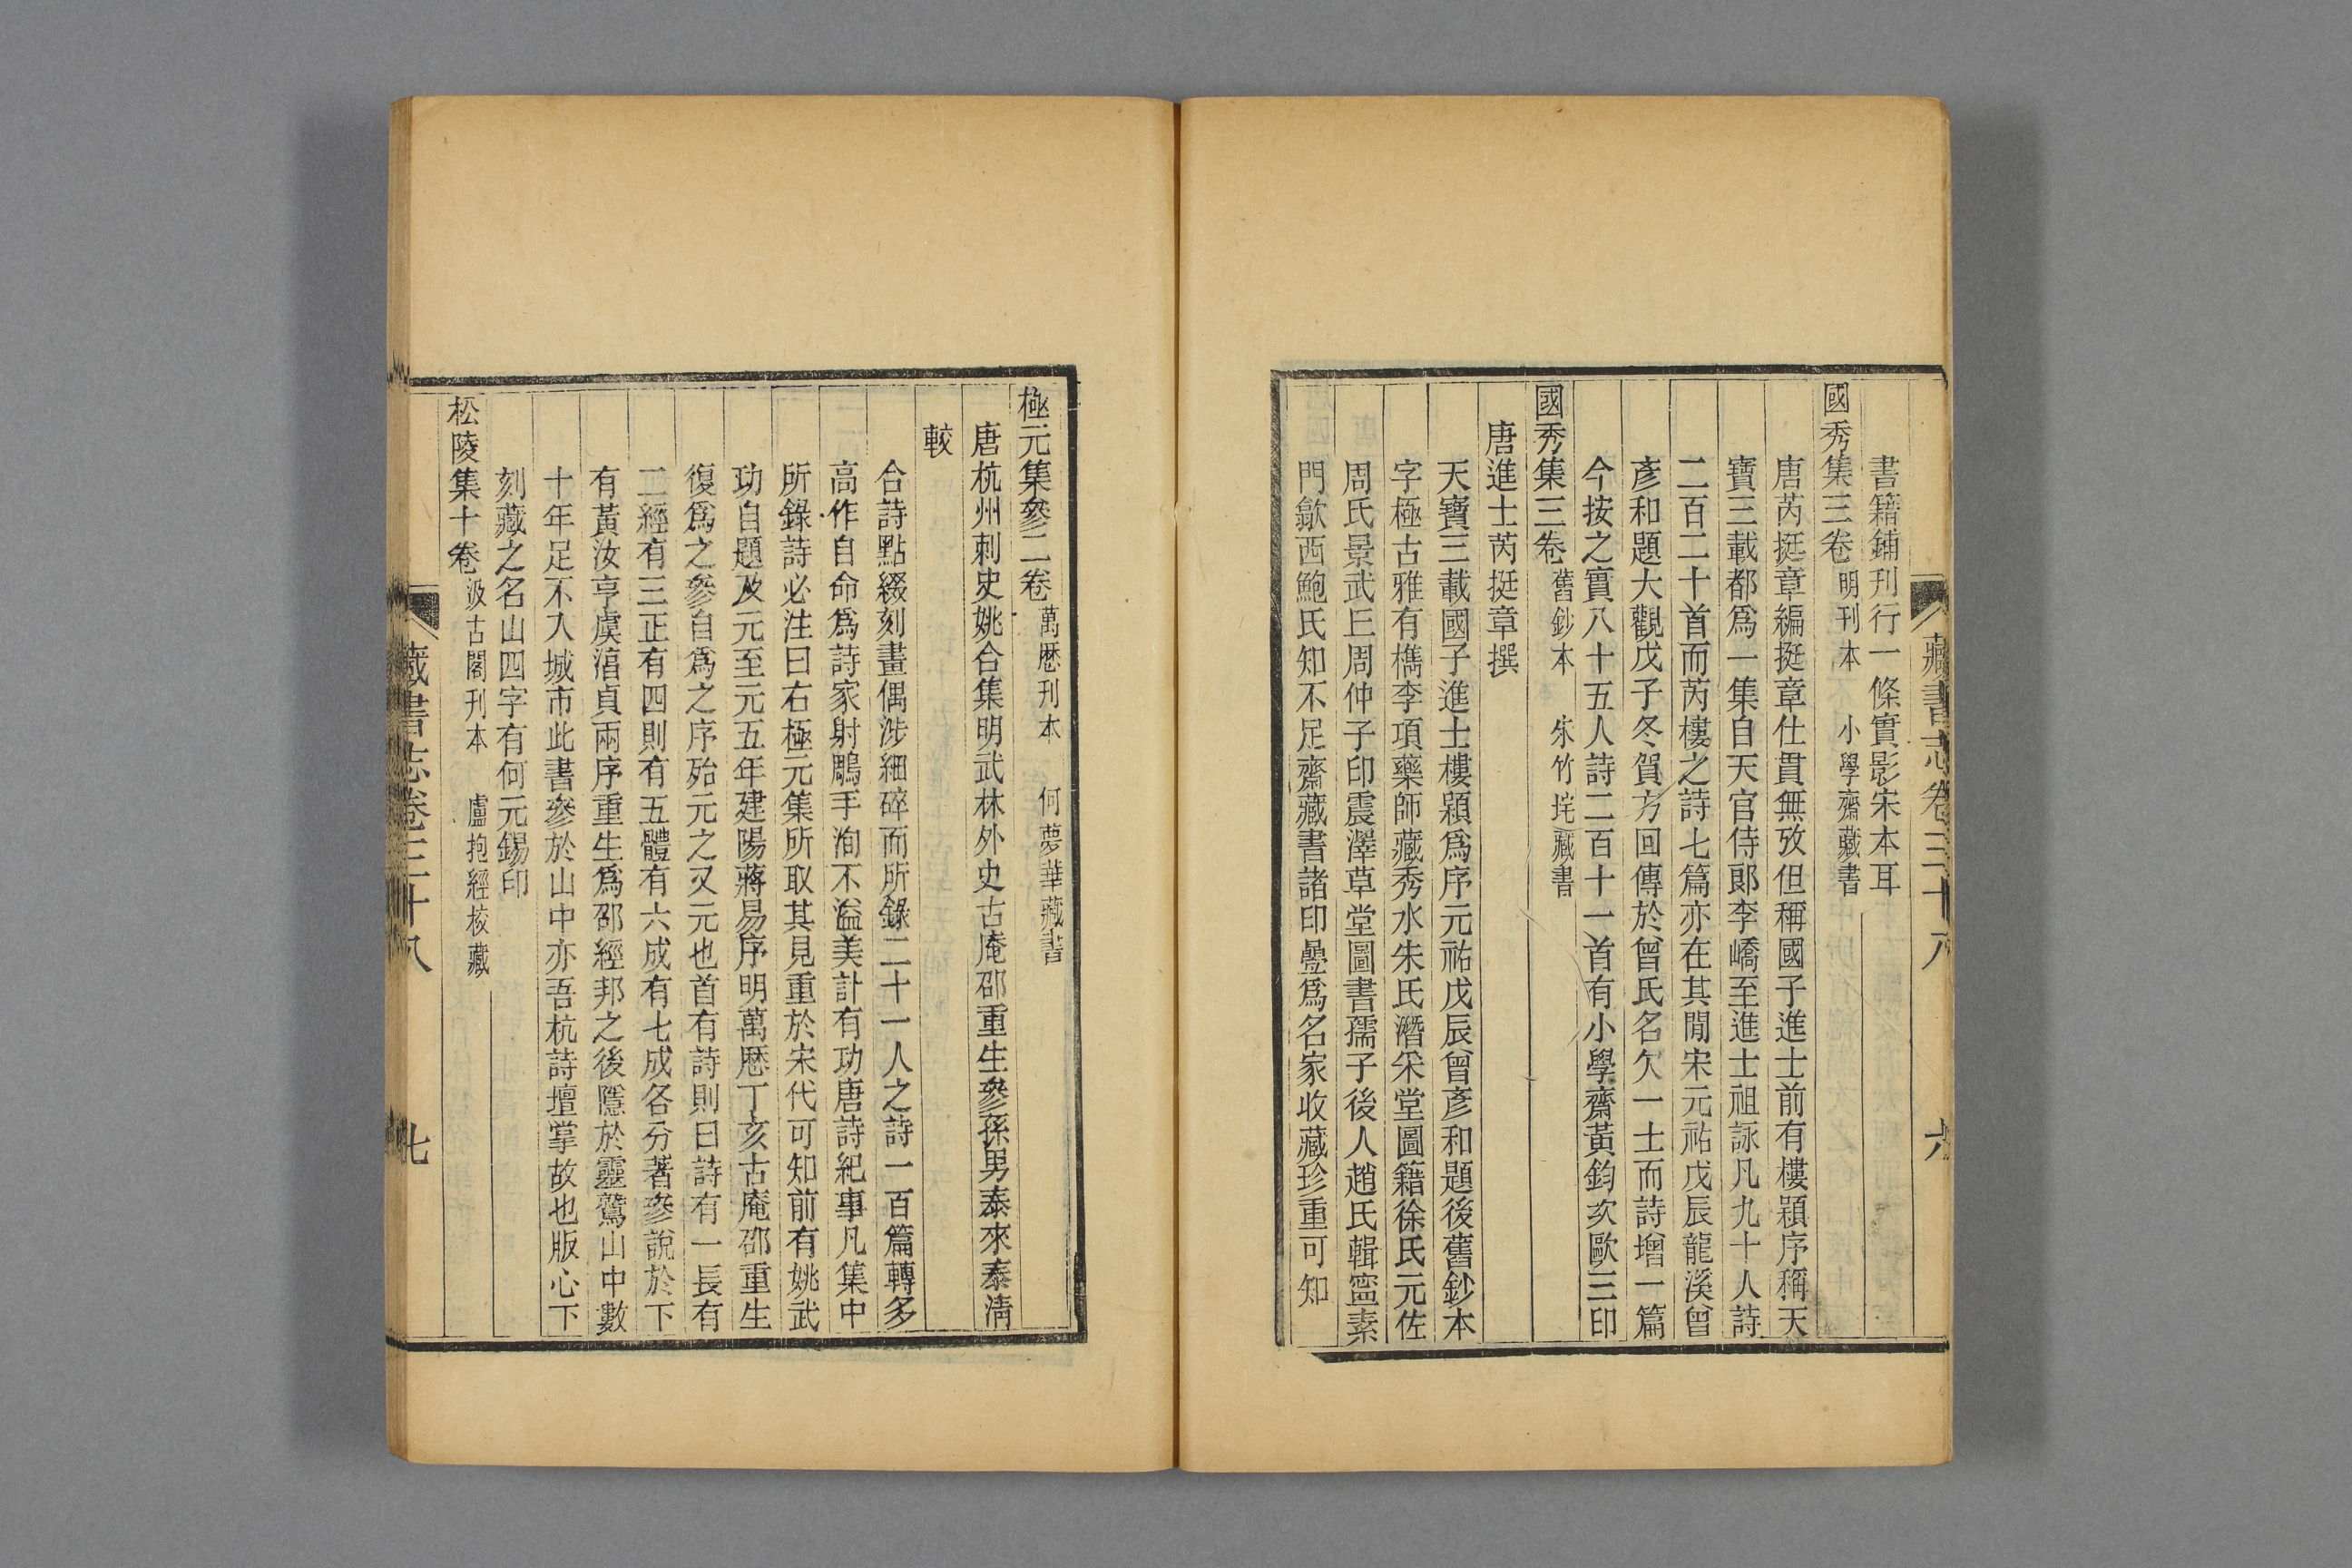 書籍鋪刊行一條實影宋本耳
國秀集三卷 明刊本 小學齋藏書
唐芮挺章編挺章仕貫無攷但稱國子進士前有樓穎序稱天
寶三載都爲一集自天官侍郎李嶠至進士祖詠凡九十人詩
二百二十首而芮樓之詩七篇亦在其閒宋元祐戊辰龍溪曾
彥和題大觀戊子冬賀方回傳於曾氏名欠一士而詩增一篇
今按之實八十五人詩二百十一首有小學齋黃鈞次歐三印
國秀集三卷 舊鈔本 朱竹垞藏書
唐進士芮挺章撰
天寶三載國子進士樓穎爲序元祐戊辰曾彥和題後舊鈔本
字極古雅有檇李項藥師藏秀水朱氏潛采堂圖籍徐氏元佐
周氏景武王周仲子印震澤草堂圖書孺子後人趙氏輯寧素
門歙西鮑氏知不足齋藏書諸印疊爲名家收藏珍重可知
藏書志卷三十八 六
極元集參二卷 萬歷刊本 何夢華藏書
唐杭州刺史姚合集明武林外史古庵邵重生參孫男泰來泰淸
較
合詩點綴刻畫偶涉細碎而所錄二十一人之詩一百篇轉多
高作自命爲詩家射鵰手洵不溢美計有功唐詩紀事凡集中
所錄詩必注曰右極元集所取其見重於宋代可知前有姚武
功自題及元至元五年建陽蔣易序明萬歷丁亥古庵邵重生
復爲之參自爲之序殆元之又元也首有詩則曰詩有一長有
二經有三正有四則有五體有六成有七成各分著參說於下
有黃汝亨虞淯貞兩序重生爲邵經邦之後隱於靈鷲山中數
十年足不入城市此書參於山中亦吾杭詩壇掌故也版心下
刻藏之名山四字有何元錫印
松陵集十卷 汲古閣刊本 盧抱經校藏
藏書志卷三十八 七